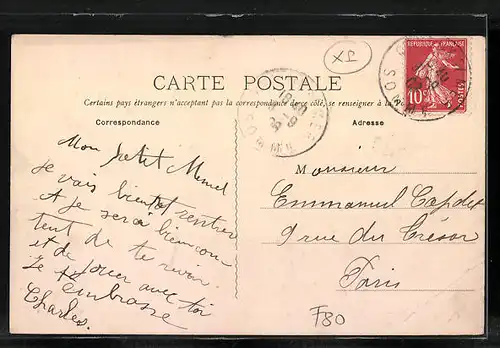 XP
CARTE POSTALE
Certains pays étrangers n'acceptant pas la correspondance de ce côté, se renseigner à la
Correspondance
Adresse
REPUBLIQUE FRANÇAISE
10
POSTES
SOMME
Mon petit Mimel
je vais bientôt rentrer
A je serai bien con
tent de te revoir
et de jouer avec toi
Je t'embrasse
Charles.
Monsieur
Emmanuel Capdet
9 rue du Trésor
Paris
F80